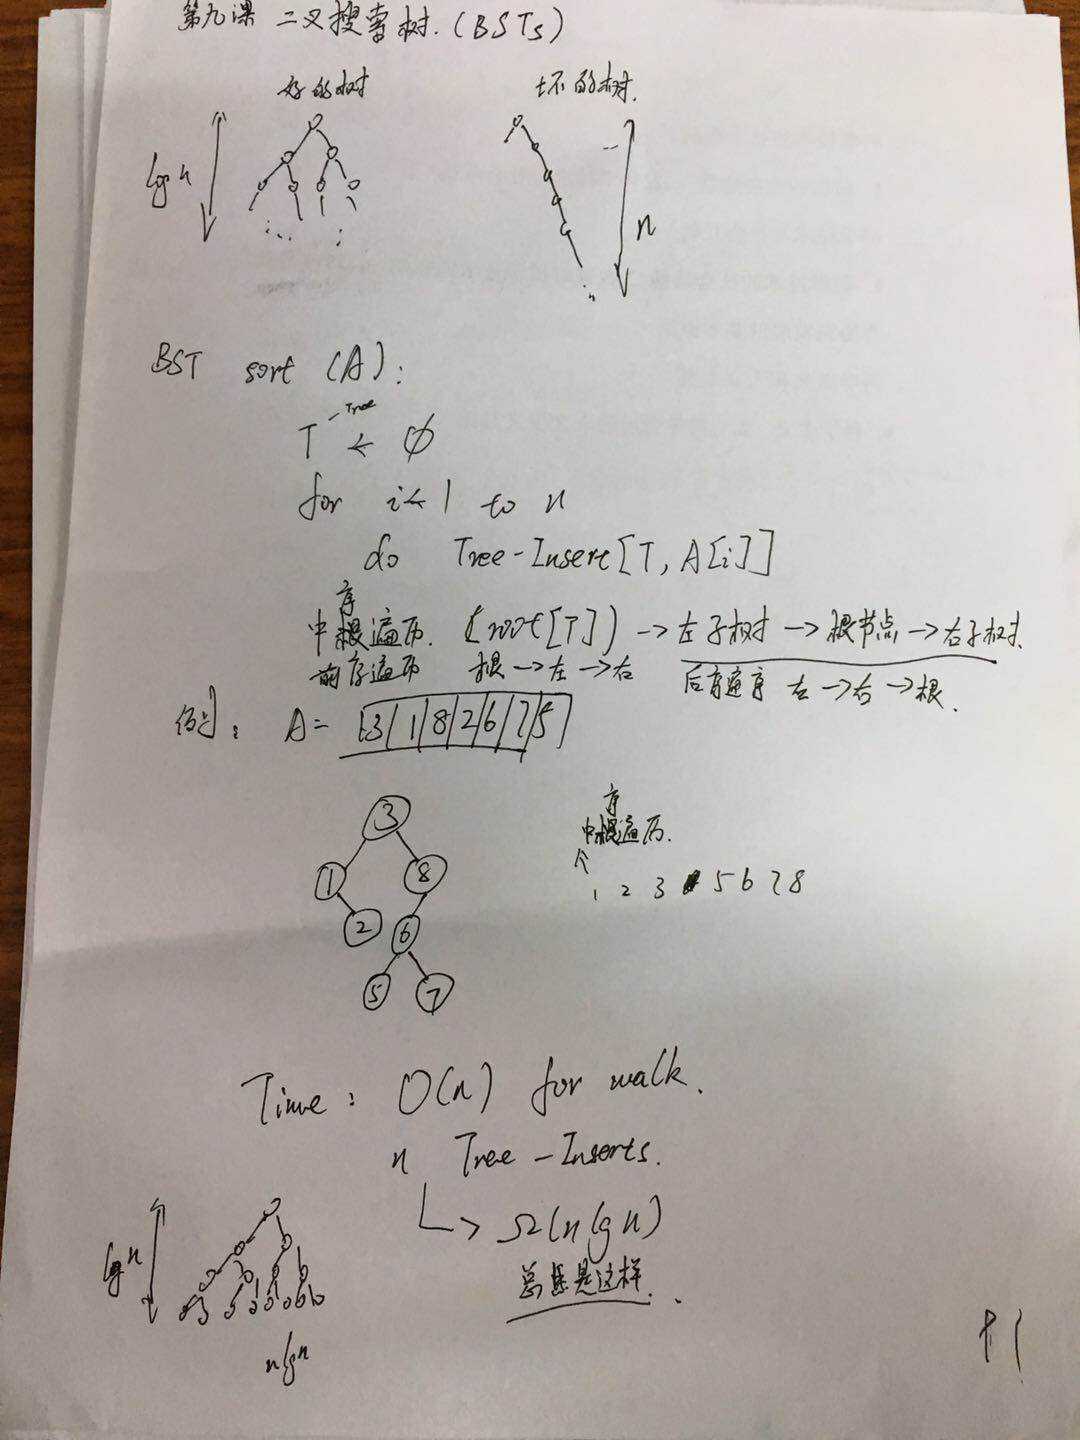 第九课 二叉搜索树.(BSTs)
好的树 坏的树.
lg n
n
BST sort (A):
Tree
T ← ∅
for i←1 to n
do Tree-Insert[T, A[i]]
序
中根遍历. (root[T]) → 左子树 → 根节点 → 右子树.
前序遍历 根→左→右 后序遍序 左→右→根.
例: A= [3|1|8|2|6|7|5]
3
1 8
2 6
5 7
序
中根遍历.
1 2 3 5 6 7 8
Time: O(n) for walk.
n Tree-Inserts.
Ω(n lg n)
总是这样.
lg n
n lg n
P1